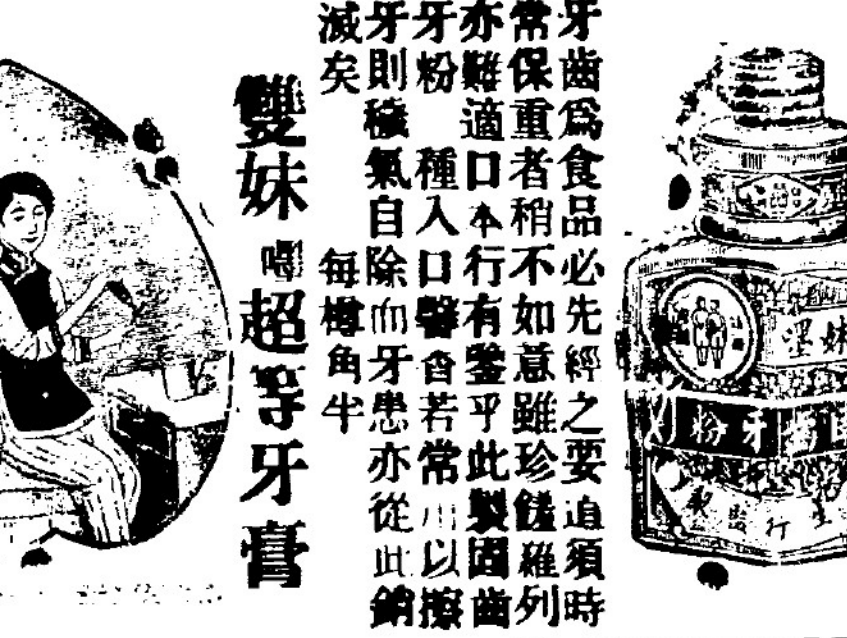 牙齒爲食品必先經之要道須時
常保重者稍不如意雖珍饈羅列
亦難適口本行有鑒乎此製固齒
牙粉 種入口馨香若常用以擦
牙則穢氣自除而牙患亦從此銷
滅矣 每樽角半
雙妹嘜超等牙膏
固齒牙粉